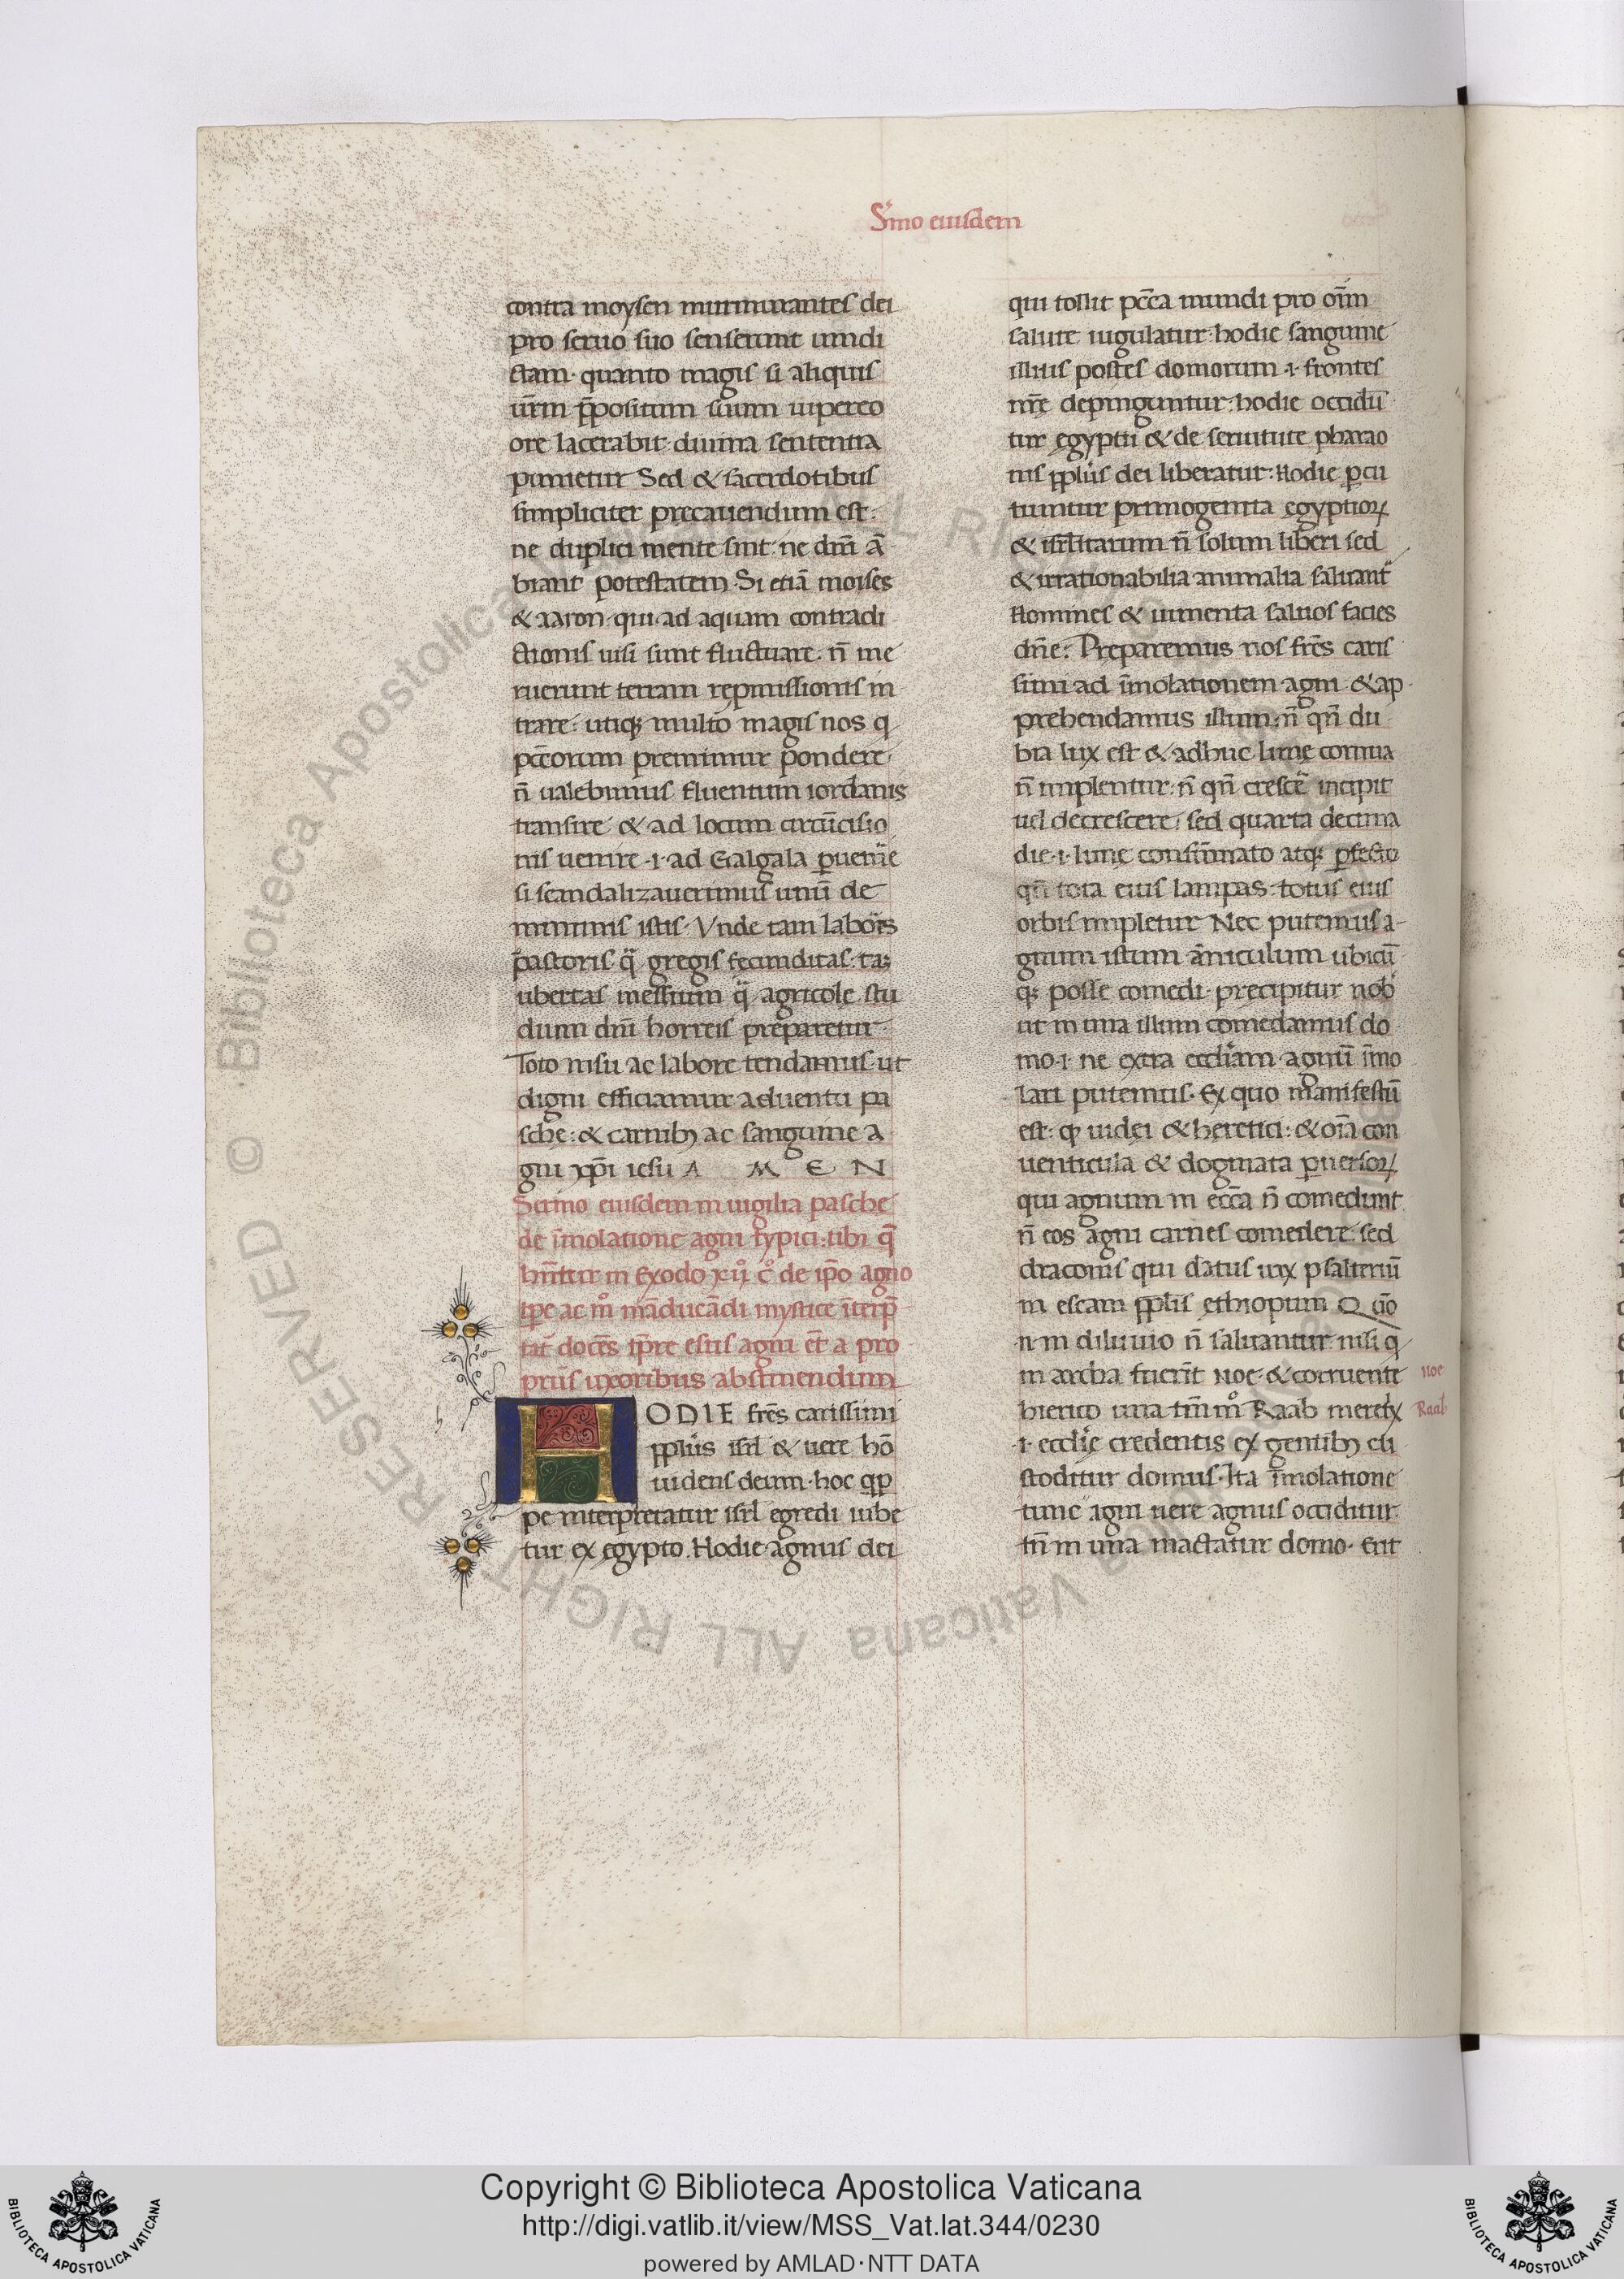 S̃mo eiusdem
contra moysen murmurantes dei
pro seruo suo senserunt uindi
ctam· quanto magis si aliquis
ur̃m p̃positum suum uipereo
ore lacerabit· diuina sententia
punietur Sed & sacerdotibus
simpliciter precauendum est·
ne duplici mente sint· ne dñi ā
biant potestatem· Si etiā moises
& aaron· qui· ad aquam contradi
ctionis uisi sunt fluctuare· ñ me
ruerunt terram repmissionis in
trare: utiq; multo magis nos q
pctõrum premimur pondere·
ñ ualebimus fluentum iordanis
transire & ad locum circũcisio
nis uenire ·i· ad Galgala peruenire
si scandalizauerimus unũ de
minimis istis· Vnde tam laboris
pastoris q̃ gregis fecunditas· tā
ubertas messium q̃ agricole stu
dium dñi horreis preparetur·
Toto nisu ac labore tendamus· ut
digni efficiamur aduentu pa
sche: & carnib; ac sanguine a
gni xp̃i iesu A M E N
Sermo eiusdem in uigilia pasche
de ĩmolatione agni typici: ubi q̃
hñtur in Exodo xij c̊ de ip̃o agno
tp̃e ac m̊ mãducãdi mystice ĩterp̃
tat̃ docẽs tp̃re esus agni et̃ a pro
prijs uxoribus abstinendum
HODIE fr̃es carissimi
pp̃lus isrl̃ & uere hõ
uidens deum· hoc qp
pe interpretatur isrl̃ egredi iube
tur ex egypto Hodie agnus dei
qui tollit pcc̃a mundi pro oĩm
salute iugulatur: hodie sanguine
illius postes domorum ·i· frontes
nr̃e depinguntur: hodie occidũ
tur egyptii & de seruitute pharao
nis pp̃lus dei liberatur: Hodie p̱cu
tiuntur primogenita egyptioꝝ
& isrl̃itarum ñ solum liberi sed
& irrationabilia animalia saluant̃
Homines & iumenta saluos facies
dñe: Preparemus nos fr̃es caris
simi ad ĩmolationem agni· & ap
prehendamus illum· ñ qñ du
bia lux est & adhuc lune cornua
ñ implentur: ñ qñ crescẽ incipit
uel decrescere: sed quarta decima
die ·i· lune consũmato atq; p̱fecto
qñ tota eius lampas· totus eius
orbis impletur Nec putemus a
gnum istum ãniculum ubicũ
q; posse comedi· precipitur nob̃
ut in una illum comedamus do
mo ·i· ne extra eccl̃iam agnũ ĩmo
lari putemus· Ex quo manifestũ
est: q̱ iudei & heretici: & oĩa con
uenticula & dogmata p̱uersoꝝ
qui agnum in ecc̃a ñ comedunt
ñ eos agni carnes comedere· sed
draconis qui datus iux psalteriũ
in escam pp̃lis ethiopum Q cio
n in diluuio ñ saluantur nisi q
in archa fuer̃t noe· & corruente
hierico una tm̃m̊ Raab meretx
·i· eccl̃ie credentis ex gentib; cu
stoditur domus· Ita ĩmolatione
tunc agni uere agnus occiditur·
tñ in una mactatur domo· Erit
noe
Raab
© Biblioteca Apostolica Vaticana ALL RIGHTS RESERVED
Copyright © Biblioteca Apostolica Vaticana
http://digi.vatlib.it/view/MSS_Vat.lat.344/0230
powered by AMLAD·NTT DATA
BIBLIOTECA APOSTOLICA VATICANA
BIBLIOTECA APOSTOLICA VATICANA